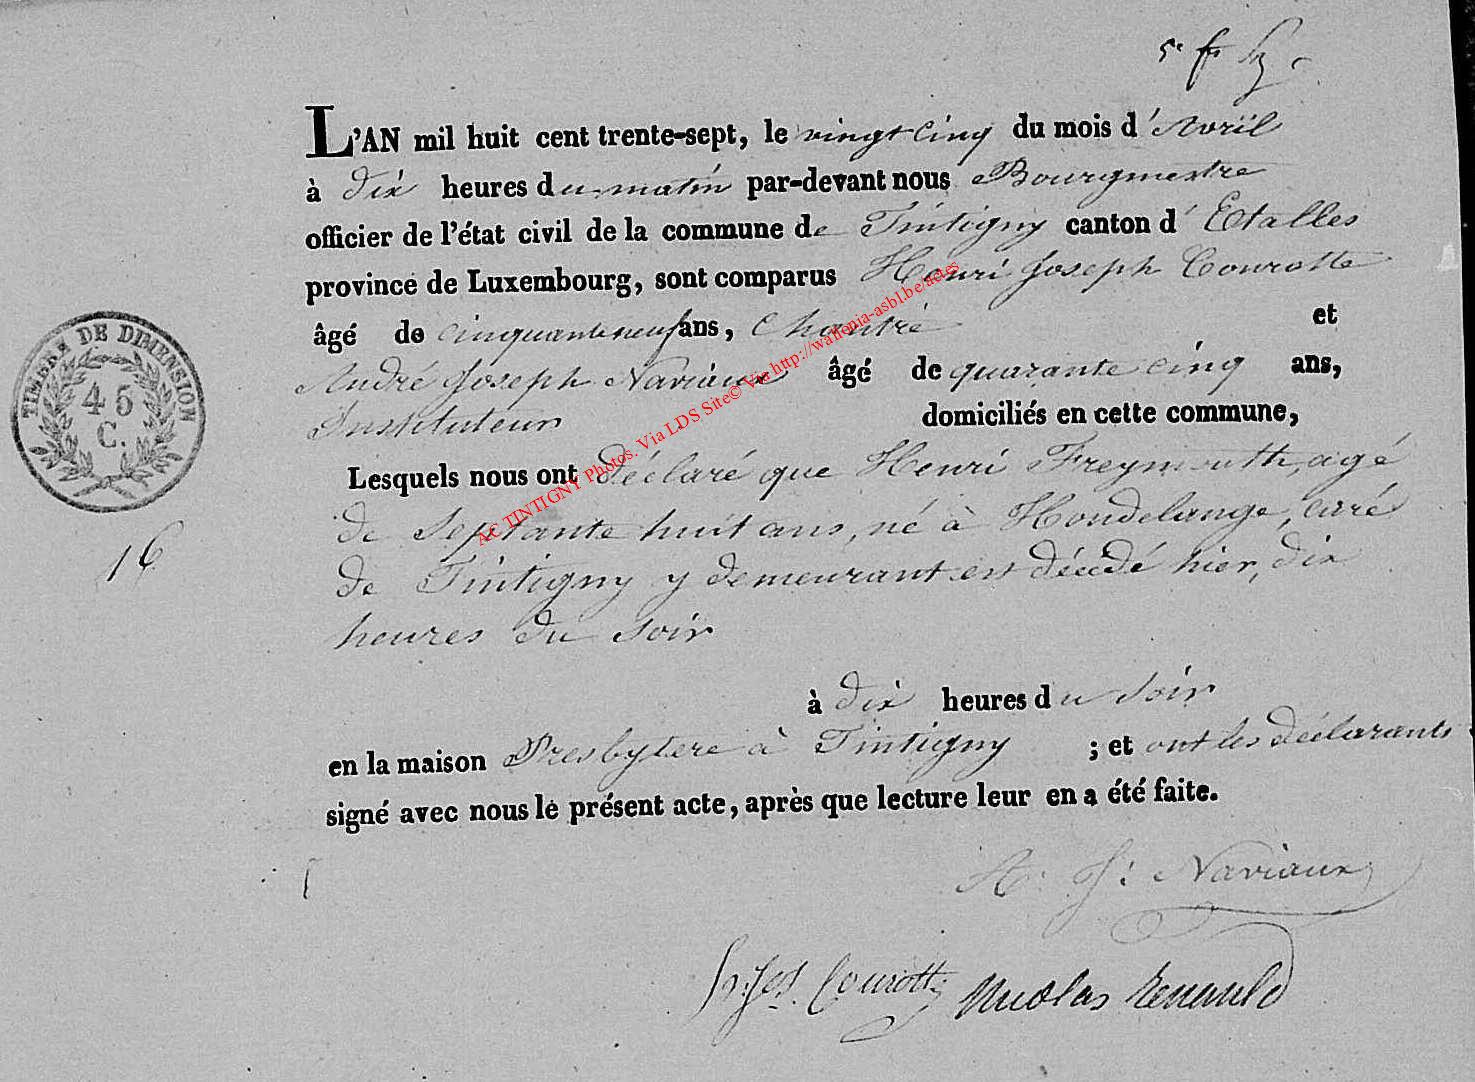 L'AN mil huit cent trente-sept, le vingt cinq du mois d'Avril
à dix heures du matin par-devant nous Bourgmestre
officier de l'état civil de la commune de Tintigny canton d'Etalles
province de Luxembourg, sont comparus Henri Joseph Courotte
âgé de cinquante neuf ans, Chantre et
André Joseph Naviaux âgé de quarante cinq ans,
Instituteur domiciliés en cette commune,
Lesquels nous ont déclaré que Henri Freymouth agé
de Septante huit ans, né à Hondelange, curé
de Tintigny y demeurant est décédé hier, dix
heures du soir
à dix heures du soir
en la maison Presbytere à Tintigny ; et ont les déclarants
signé avec nous le présent acte, après que lecture leur en a été faite.
A. J. Naviaux
h. Jos. Courotte Nicolas Renauld
TIMBRE DE DIMENSION
45
C.
16
AC TINTIGNY Photos. Via LDS Site© Via http://wallonia-asbl.be/actes